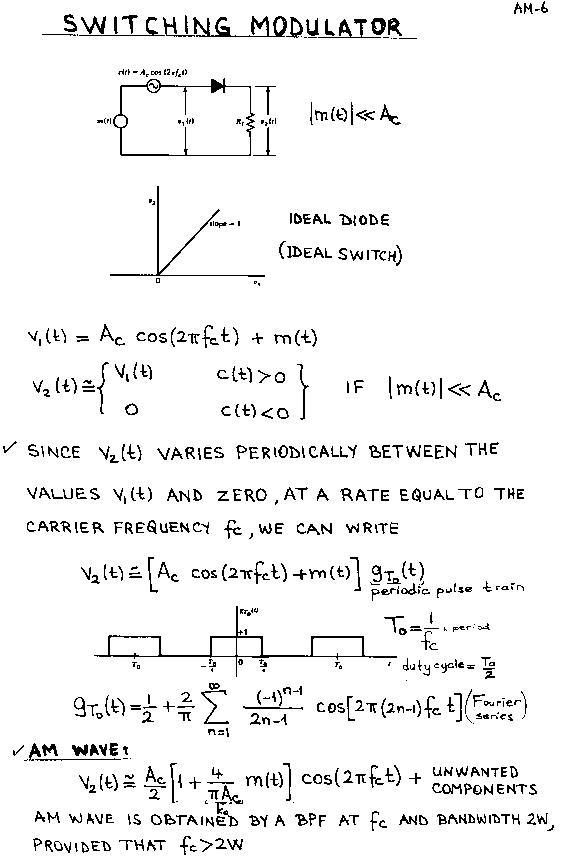 AM-6
SWITCHING MODULATOR
c(t) = A_c cos (2πf_c t)
m(t) v₁(t) R_l v₂(t) |m(t)| ≪ A_c
v₂
slope = 1
0
v₁
IDEAL DIODE
(IDEAL SWITCH)
v₁(t) = A_c cos(2πf_c t) + m(t)
v₂(t) ≅ { v₁(t) c(t)>0
0 c(t)<0 } IF |m(t)| ≪ A_c
✓ SINCE v₂(t) VARIES PERIODICALLY BETWEEN THE
VALUES v₁(t) AND ZERO, AT A RATE EQUAL TO THE
CARRIER FREQUENCY f_c, WE CAN WRITE
v₂(t) ≅ [A_c cos(2πf_c t) + m(t)] g_T₀(t)
periodic pulse train
g_T₀(t)
+1
T₀ = 1/f_c : period
-T₀ -T₀/4 0 T₀/4 T₀ t
duty cycle = T₀/2
g_T₀(t) = 1/2 + 2/π ∑_{n=1}^{∞} (-1)^{n-1}/(2n-1) cos[2π(2n-1)f_c t] (Fourier series)
✓ AM WAVE:
v₂(t) ≅ A_c/2 [1 + 4/(πA_c) m(t)] cos(2πf_c t) + UNWANTED COMPONENTS
k_a
AM WAVE IS OBTAINED BY A BPF AT f_c AND BANDWIDTH 2W,
PROVIDED THAT f_c > 2W